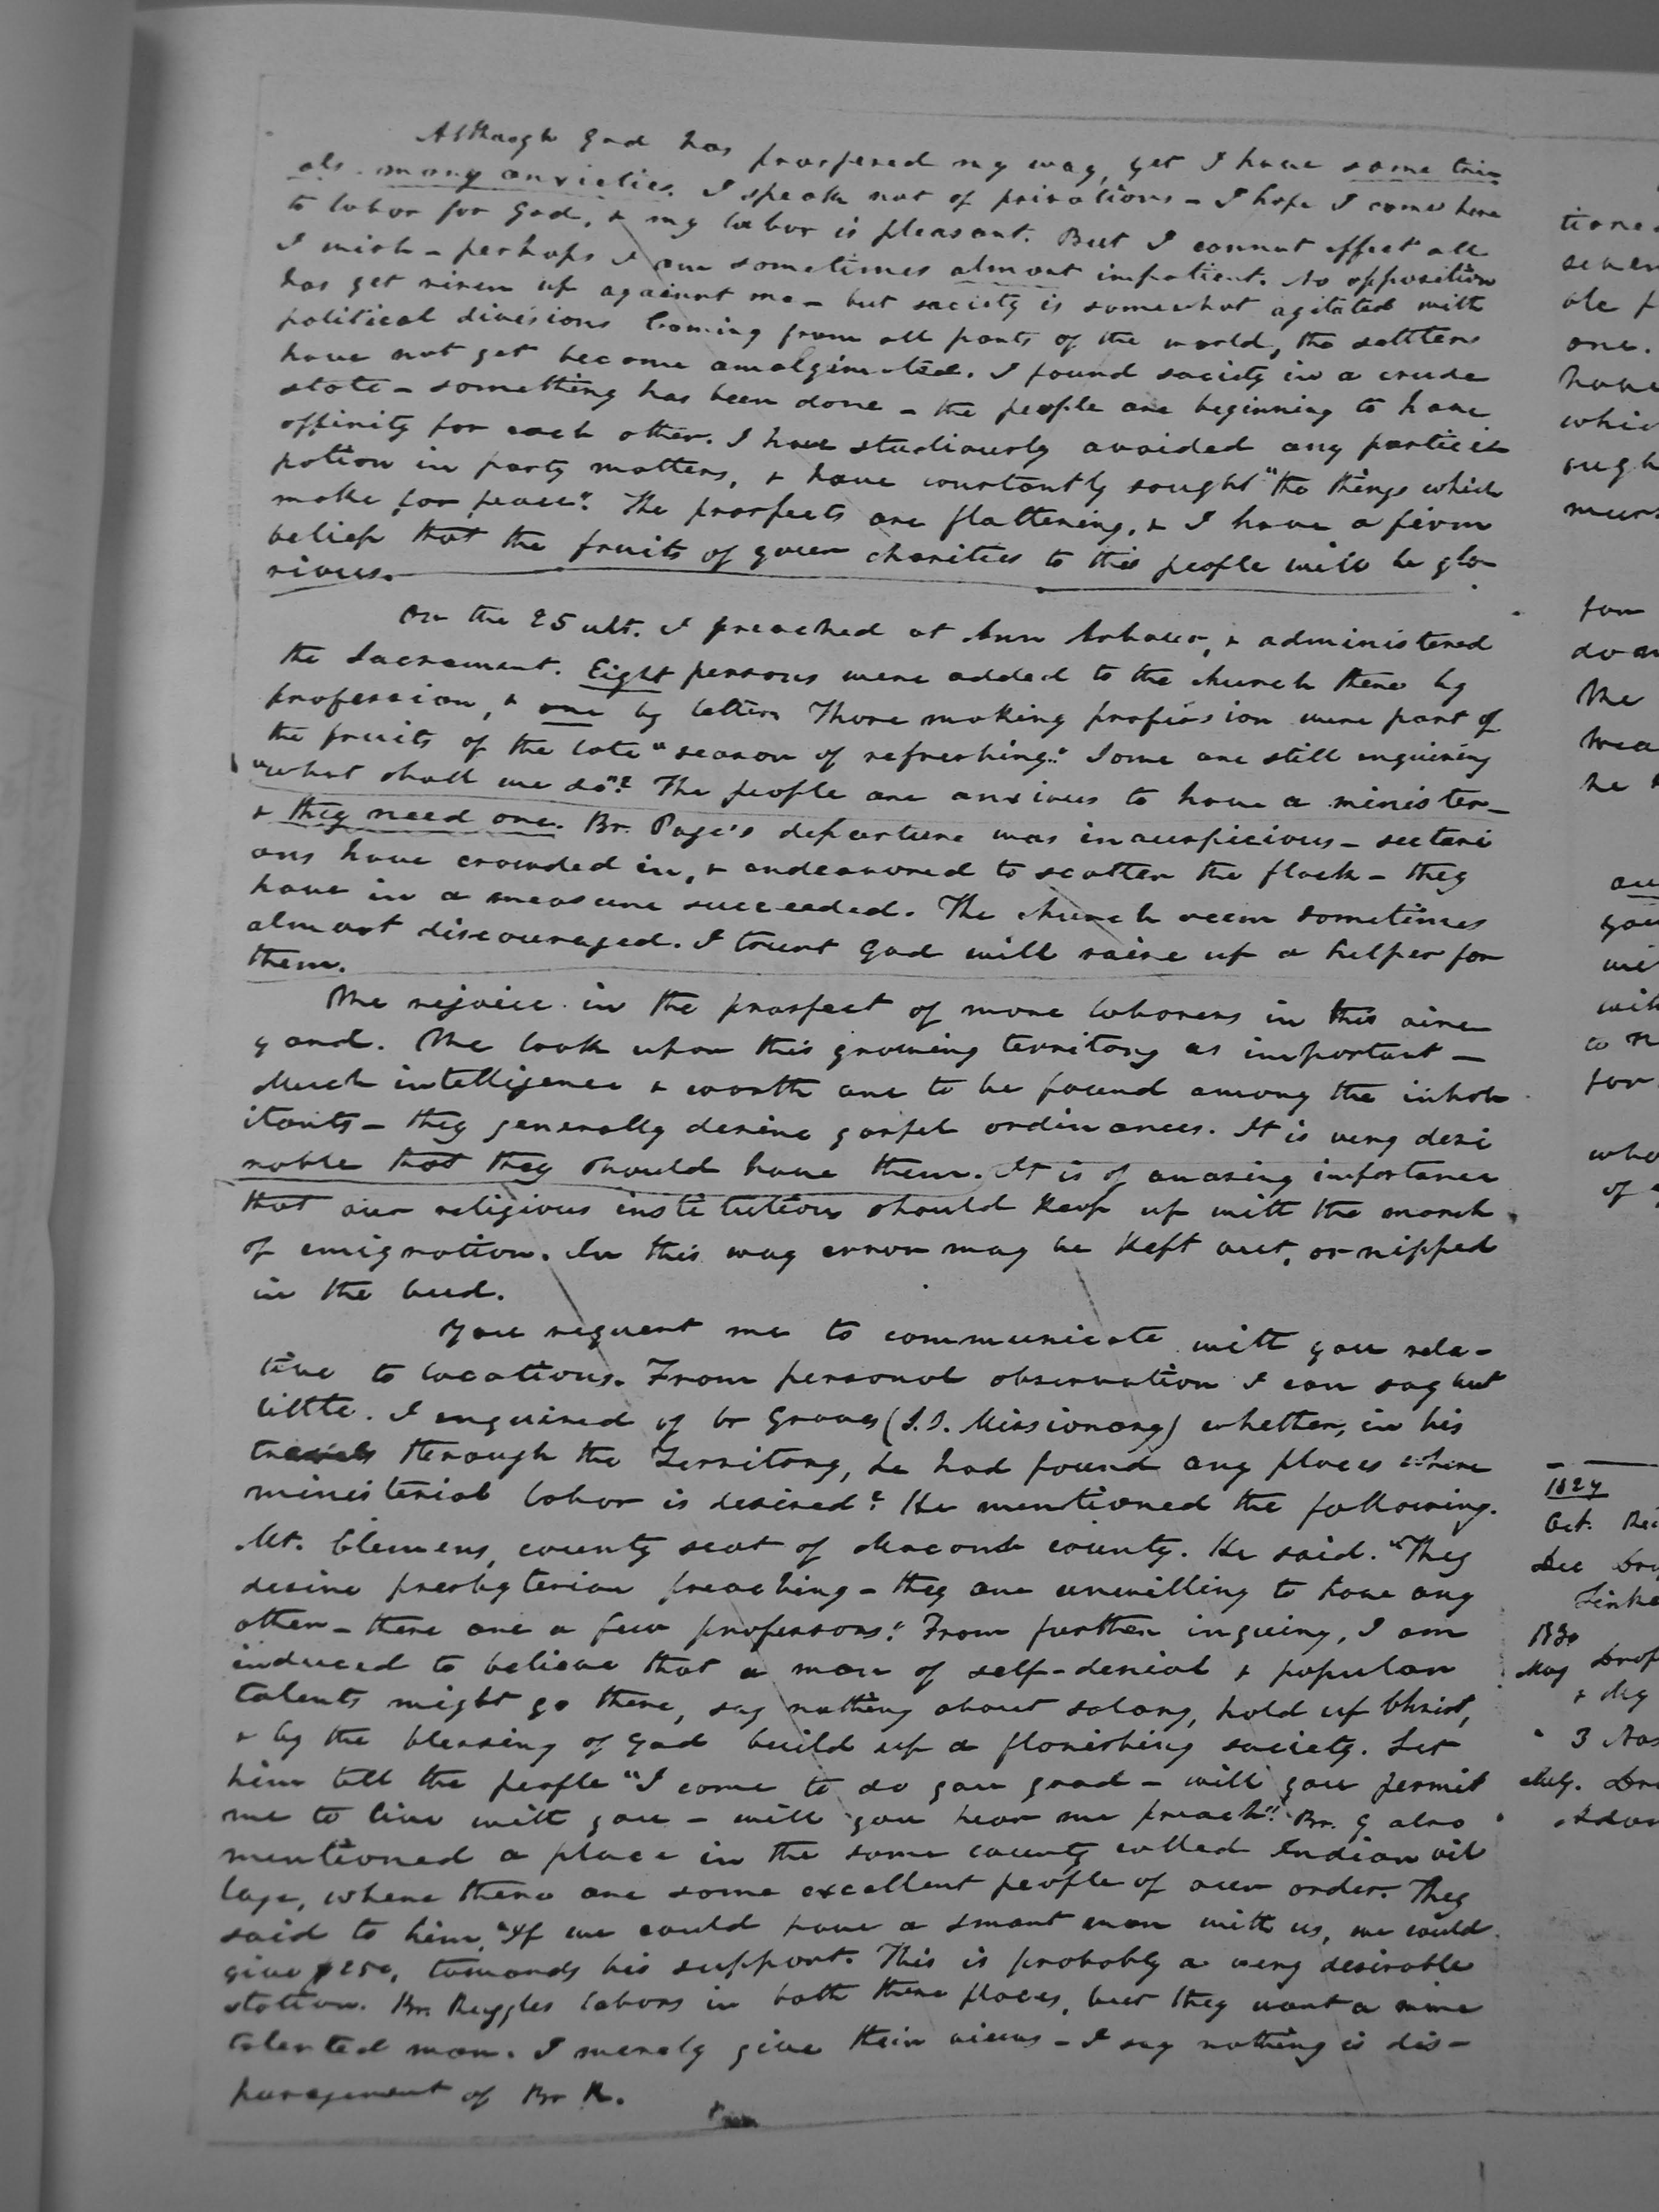 Although God has prospered my way, yet I have some tri-
als. many anxieties. I speak not of privations - I hope I came here
to labor for God, & my labor is pleasant. But I cannot effect all
I wish - perhaps I am sometimes almost impatient. No opposition
has yet risen up against me - but society is somewhat agitated with
political divisions Coming from all parts of the world, the settlers
have not yet become amalgimated. I found society in a crude
state - something has been done - the people are beginning to have
affinity for each other. I have studiously avoided any partici-
pation in party matters, & have constantly sought "the things which
make for peace". The prospects are flattering, & I have a firm
belief that the fruits of your charities to this people will be glo-
rious.
On the 25 ult. I preached at Ann Arbour, & administered
the Sacrament. Eight persons were added to the church there by
profession, & one by letter. Those making profession were part of
the fruits of the late "season of refreshing". Some are still enquiring
"what shall we do"? The people are anxious to have a minister -
& they need one. Br. Page's departure was inauspicious - sectari
ans have crowded in, & endeavored to scatter the flock - they
have in a measure succeeded. The church seem sometimes
almost discouraged. I trust God will raise up a helper for
them.
We rejoice in the prospect of more laborers in this vine
yard. We look upon this growing territory as important -
Much intelligence & worth are to be found among the inhab
itants - they generally desire gospel ordinances. It is very desi
rable that they should have them. It is of amazing importance
that our religious institutions should keep up with the march
of emigration. In this way error may be kept out, or nipped
in the bud.
You request me to communicate with you rela-
tive to locations. From personal observation I can say but
little. I enquired of br Groves (S.S. Missionary) whether, in his
travels through the Territory, he had found any places where
ministerial labor is desired? He mentioned the following.
Mt. Clemens, county seat of Macomb county. He said. "They
desire presbyterian preaching - they are unwilling to have any
other - there are a few professors". From further inquiry, I am
induced to believe that a man of self-denial & popular
talents might go there, say nothing about salary, hold up Christ,
& by the blessing of God build up a florishing society. Let
him tell the people "I come to do you good - will you permit
me to live with you - will you hear me preach". Br. G also
mentioned a place in the same county called Indian vil
lage, where there are some excellent people of our order. They
said to him, "If we could have a smart man with us, we would
give $250, towards his support. This is probably a very desirable
station. Br. Ruggles labors in both these places, but they want a more
talented man. I merely give their views - I say nothing in dis-
paragement of Br R.
1829
Oct.
Dec
1830
May
& My
" 3
July.